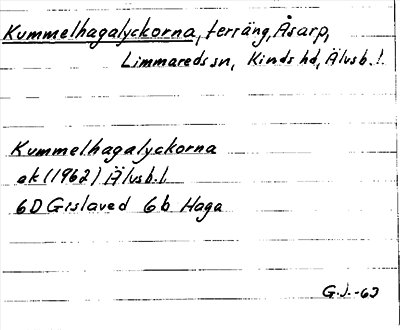 Kummelhagalyckorna, terräng, Åsarp,
Limmareds sn, Kinds hd, Älvsb. l.
Kummelhagalyckorna
ek (1962) Älvsb. l
6D Gislaved 6b Haga
G.J. -63